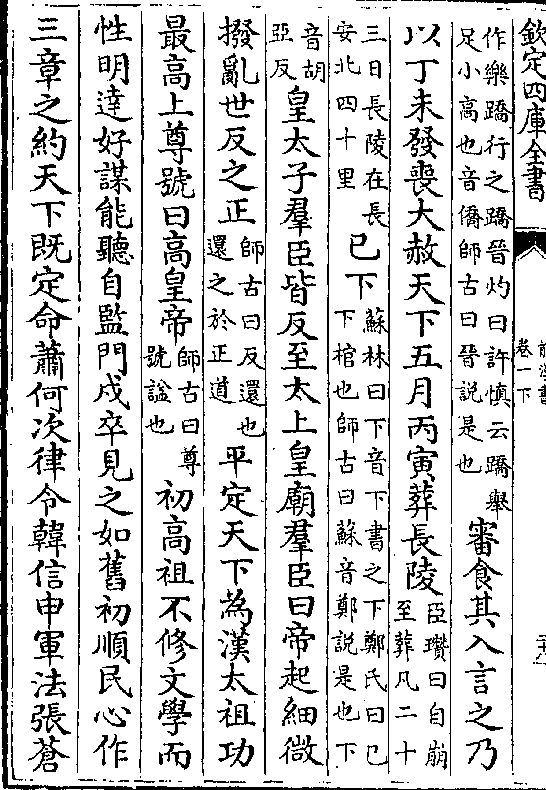 欽定四庫全書
前漢書
卷一下
作樂蹻行之蹻晉灼曰許慎云蹻舉
足小高也音僑師古曰晉説是也
審食其入言之乃
以丁未發喪大赦天下五月丙寅葬長陵
臣瓚曰自崩
至葬凡二十
三日長陵在長
安北四十里
已下
蘇林曰下音下書之下鄭氏曰已
下棺也師古曰蘇音鄭説是也下
音胡
亞反
皇太子羣臣皆反至太上皇廟羣臣曰帝起細微
撥亂世反之正
師古曰反還也
還之於正道
平定天下為漢太祖功
最高上尊號曰高皇帝
師古曰尊
號諡也
初高祖不修文學而
性明達好謀能聽自監門戍卒見之如舊初順民心作
三章之約天下既定命蕭何次律令韓信申軍法張蒼